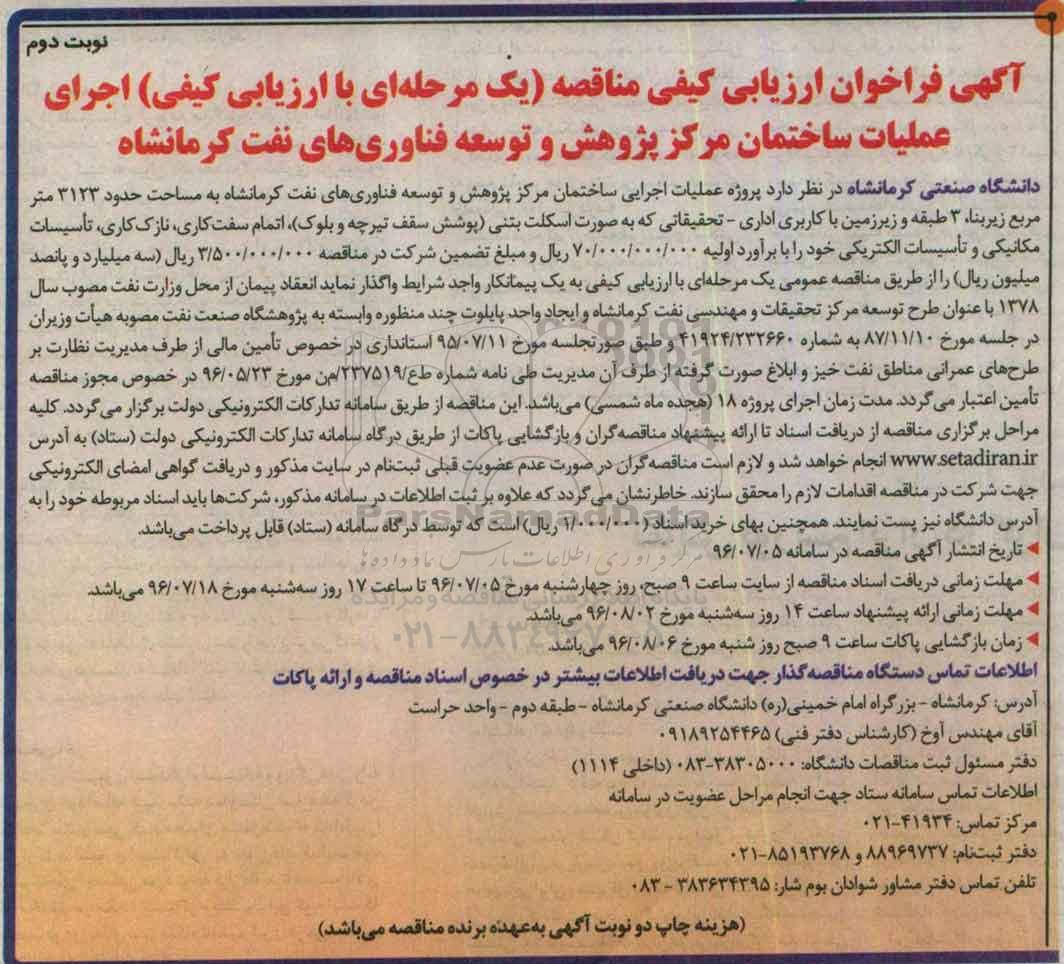 نوبت دوم
آگهی فراخوان ارزیابی کیفی مناقصه (یک مرحله‌ای با ارزیابی کیفی) اجرای
عملیات ساختمان مرکز پژوهش و توسعه فناوری‌های نفت کرمانشاه
دانشگاه صنعتی کرمانشاه در نظر دارد پروژه عملیات اجرایی ساختمان مرکز پژوهش و توسعه فناوری‌های نفت کرمانشاه به مساحت حدود ۳۱۲۳ متر
مربع زیربنا، ۳ طبقه و زیرزمین با کاربری اداری - تحقیقاتی که به صورت اسکلت بتنی (پوشش سقف تیرچه و بلوک)، اتمام سفت‌کاری، نازک‌کاری، تأسیسات
مکانیکی و تأسیسات الکتریکی خود را با برآورد اولیه ۷۰/۰۰۰/۰۰۰/۰۰۰ ریال و مبلغ تضمین شرکت در مناقصه ۳/۵۰۰/۰۰۰/۰۰۰ ریال (سه میلیارد و پانصد
میلیون ریال) را از طریق مناقصه عمومی یک مرحله‌ای با ارزیابی کیفی به یک پیمانکار واجد شرایط واگذار نماید انعقاد پیمان از محل وزارت نفت مصوب سال
۱۳۷۸ با عنوان طرح توسعه مرکز تحقیقات و مهندسی نفت کرمانشاه و ایجاد واحد پایلوت چند منظوره وابسته به پژوهشگاه صنعت نفت مصوبه هیأت وزیران
در جلسه مورخ ۸۷/۱۱/۱۰ به شماره ۴۱۹۲۴/۲۳۲۶۶۰ و طبق صورتجلسه مورخ ۹۵/۰۷/۱۱ استانداری در خصوص تأمین مالی از طرف مدیریت نظارت بر
طرح‌های عمرانی مناطق نفت خیز و ابلاغ صورت گرفته از طرف آن مدیریت طی نامه شماره طع/۲۳۷۵۱۹/م‌ن مورخ ۹۶/۰۵/۲۳ در خصوص مجوز مناقصه
تأمین اعتبار می‌گردد. مدت زمان اجرای پروژه ۱۸ (هجده ماه شمسی) می‌باشد. این مناقصه از طریق سامانه تدارکات الکترونیکی دولت برگزار می‌گردد. کلیه
مراحل برگزاری مناقصه از دریافت اسناد تا ارائه پیشنهاد مناقصه‌گران و بازگشایی پاکات از طریق درگاه سامانه تدارکات الکترونیکی دولت (ستاد) به آدرس
www.setadiran.ir انجام خواهد شد و لازم است مناقصه‌گران در صورت عدم عضویت قبلی ثبت‌نام در سایت مذکور و دریافت گواهی امضای الکترونیکی
جهت شرکت در مناقصه اقدامات لازم را محقق سازند. خاطرنشان می‌گردد که علاوه بر ثبت اطلاعات در سامانه مذکور، شرکت‌ها باید اسناد مربوطه خود را به
آدرس دانشگاه نیز پست نمایند. همچنین بهای خرید اسناد (۱/۰۰۰/۰۰۰ ریال) است که توسط درگاه سامانه (ستاد) قابل پرداخت می‌باشد.
تاریخ انتشار آگهی مناقصه در سامانه ۹۶/۰۷/۰۵
مهلت زمانی دریافت اسناد مناقصه از سایت ساعت ۹ صبح، روز چهارشنبه مورخ ۹۶/۰۷/۰۵ تا ساعت ۱۷ روز سه‌شنبه مورخ ۹۶/۰۷/۱۸ می‌باشد.
مهلت زمانی ارائه پیشنهاد ساعت ۱۴ روز سه‌شنبه مورخ ۹۶/۰۸/۰۲ می‌باشد.
زمان بازگشایی پاکات ساعت ۹ صبح روز شنبه مورخ ۹۶/۰۸/۰۶ می‌باشد.
اطلاعات تماس دستگاه مناقصه‌گذار جهت دریافت اطلاعات بیشتر در خصوص اسناد مناقصه و ارائه پاکات
آدرس: کرمانشاه - بزرگراه امام خمینی(ره) دانشگاه صنعتی کرمانشاه - طبقه دوم - واحد حراست
آقای مهندس آوخ (کارشناس دفتر فنی) ۰۹۱۸۹۲۵۴۴۶۵
دفتر مسئول ثبت مناقصات دانشگاه: ۳۸۳۰۵۰۰۰-۰۸۳ (داخلی ۱۱۱۴)
اطلاعات تماس سامانه ستاد جهت انجام مراحل عضویت در سامانه
مرکز تماس: ۴۱۹۳۴-۰۲۱
دفتر ثبت‌نام: ۸۸۹۶۹۷۳۷ و ۸۵۱۹۳۷۶۸-۰۲۱
تلفن تماس دفتر مشاور شوادان بوم شار: ۳۸۳۶۳۴۳۹۵ - ۰۸۳
(هزینه چاپ دو نوبت آگهی به‌عهده برنده مناقصه می‌باشد)
ParsNamadData
مرکز فرآوری اطلاعات پارس نماد داده‌ها